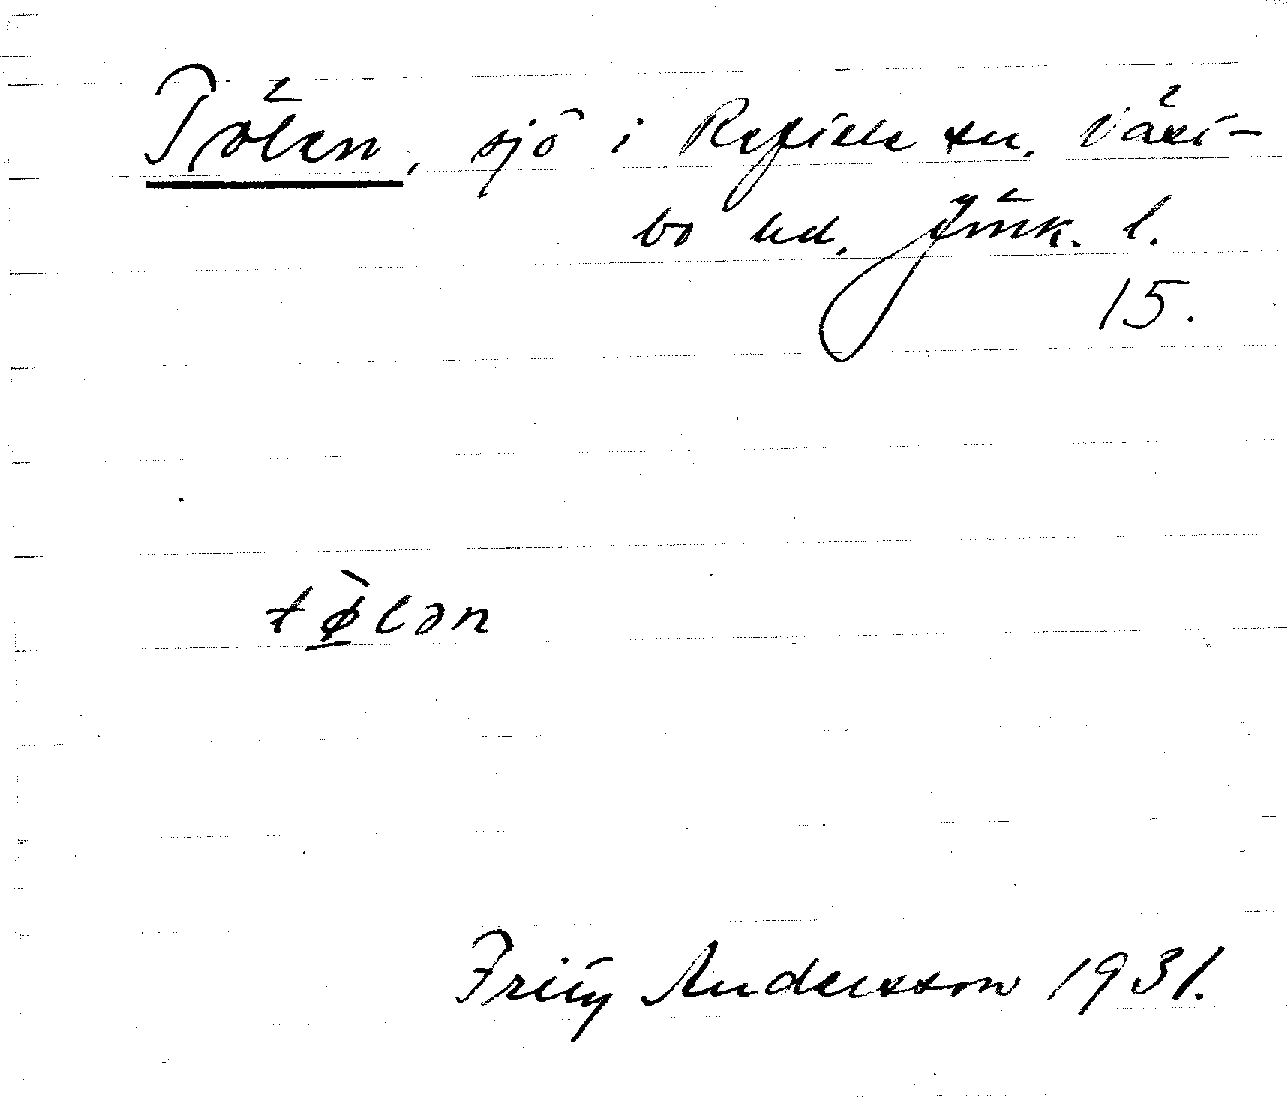 Tölen, sjö i Reftele sn. Väst-
bo hd. Jönk. l.
15.
tø̀lən
Fritz Andersson 1931.